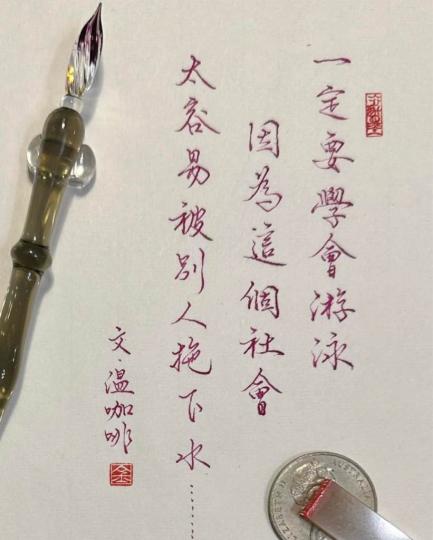 一定要學會游泳
因為這個社會
太容易被別人拖下水……
文·溫咖啡